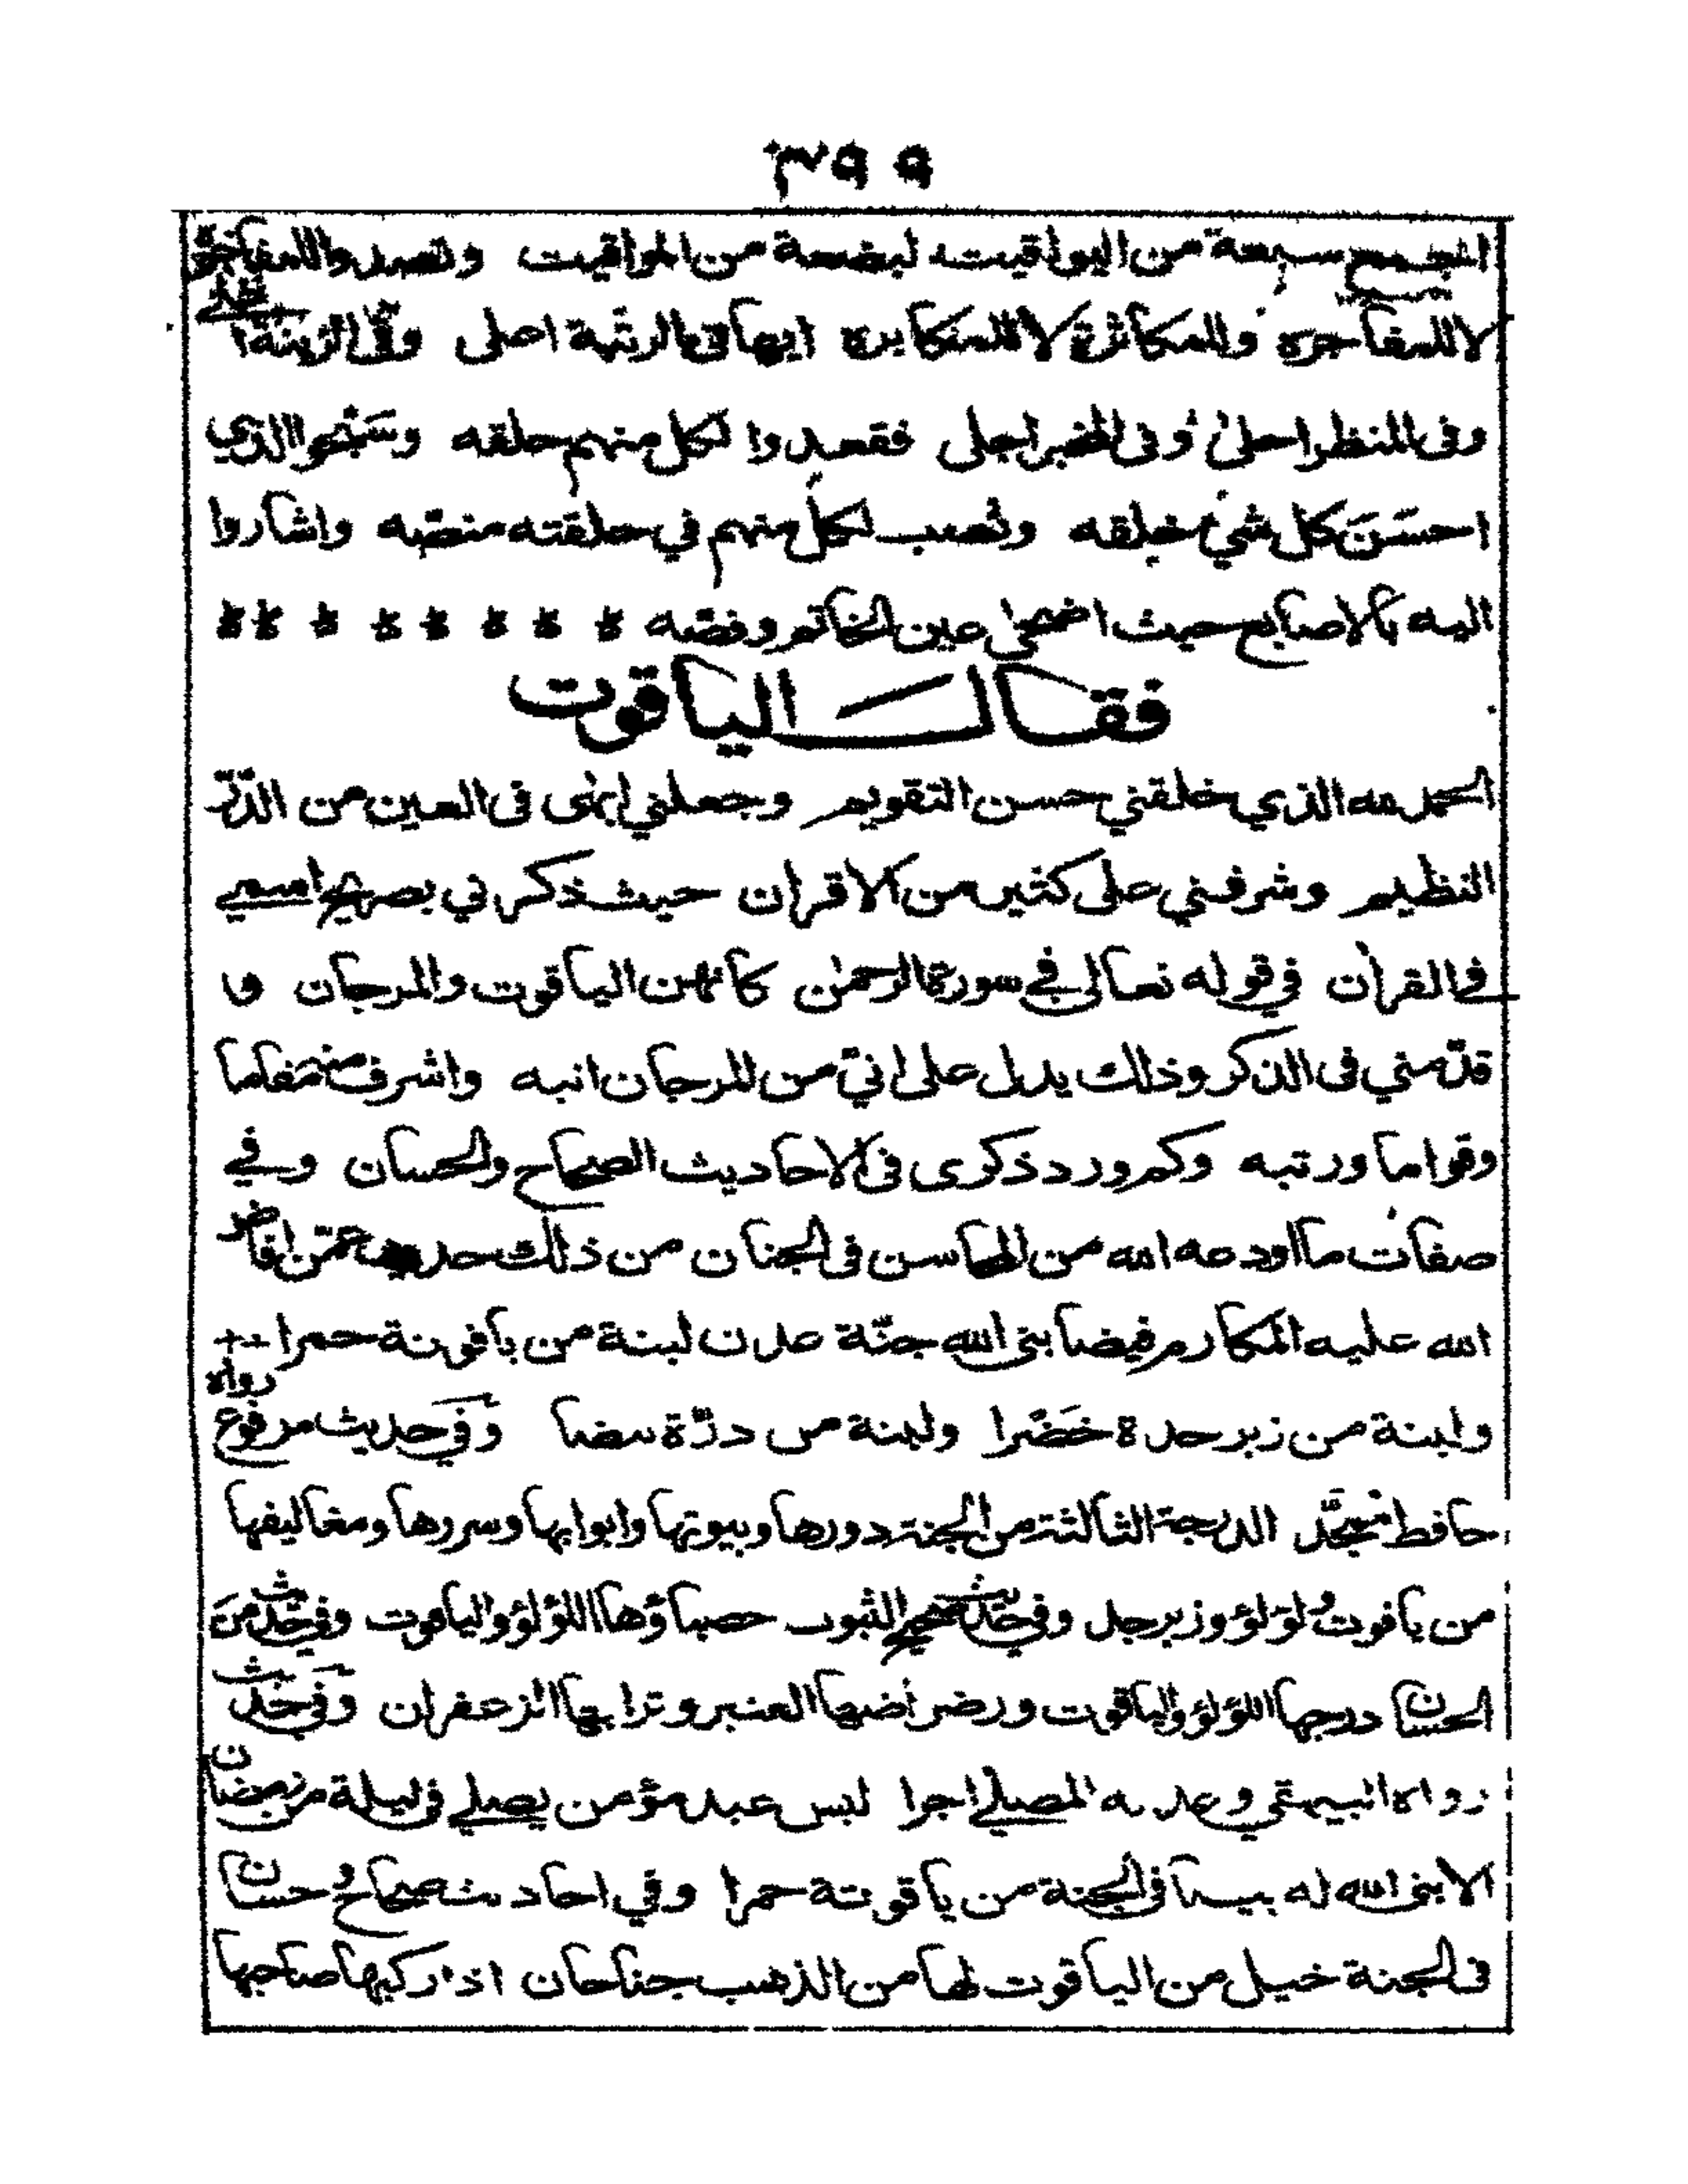 ٣٩٩
اجتمع سبعة من اليواقيت لبضعة من المواقيت وتصدروا للمفاخرة
لا للمفاجره وللمكاثرة لا للمكابره ايها في الرتبة اعلى وفي الزينة اغلى
وفى المنظر احلى وفى المخبر اجلى فقعدوا لكل منهم حلقه وسبحوا الذي
احسَنَ كل شيء خلقه ونصب لكل منهم في حلقته منصّبه واشاروا
اليه بالاصابع حيث اضحى عين الخاتم وفصّه
فقال الياقوت
الحمد لله الذي خلقني حسن التقويم وجعلني ابهى فى العين من الدّرّ
النظيم وشرفني على كثير من الاقران حيث ذكرني بصريح اسمي
في القرأن في قوله تعالى في سورة الرحمٰن كانهن الياقوت والمرجان و
قدّمني فى الذكر وذلك يدل على انيّ من المرجان انبه واشرف منه مقاما
وقواما ورتبه وكم ورد ذكرى فى الاحاديث الصحاح والحسان وفي
صفات ما اودعه الله من المحاسن فى الجنان من ذلك حديث عمّن افاض
الله عليه المكارم فيضا بنى الله جنّة عدن لبنة من ياقوتة حمرا
ولبنة من زبرجدة خَضْرا ولبنة من درّة بيضا وفي حديث مرفوع رواه
حافظ مجّد الدرجة الثالثة من الجنة دورها وبيوتها وابوابها وسررها ومغاليقها
من ياقوت ولؤلؤ وزبرجد وفي حديث صحيح الثبوت حصباؤها اللؤلؤ والياقوت وفي حديث من
الحسان درجها اللؤلؤ والياقوت ورضراضها العنبر وترابها الزعفران وفي حديث
رواه البيهقي وعد به المصلي اجرا ليس عبد مؤمن يصلي في ليلة من رمضان
الا بنى الله له بيتا فى الجنة من ياقوتة حمرا وفي احاديث صحاح وحسان
فى الجنة خيل من الياقوت لها من الذهب جناحان اذا ركبها صاحبها